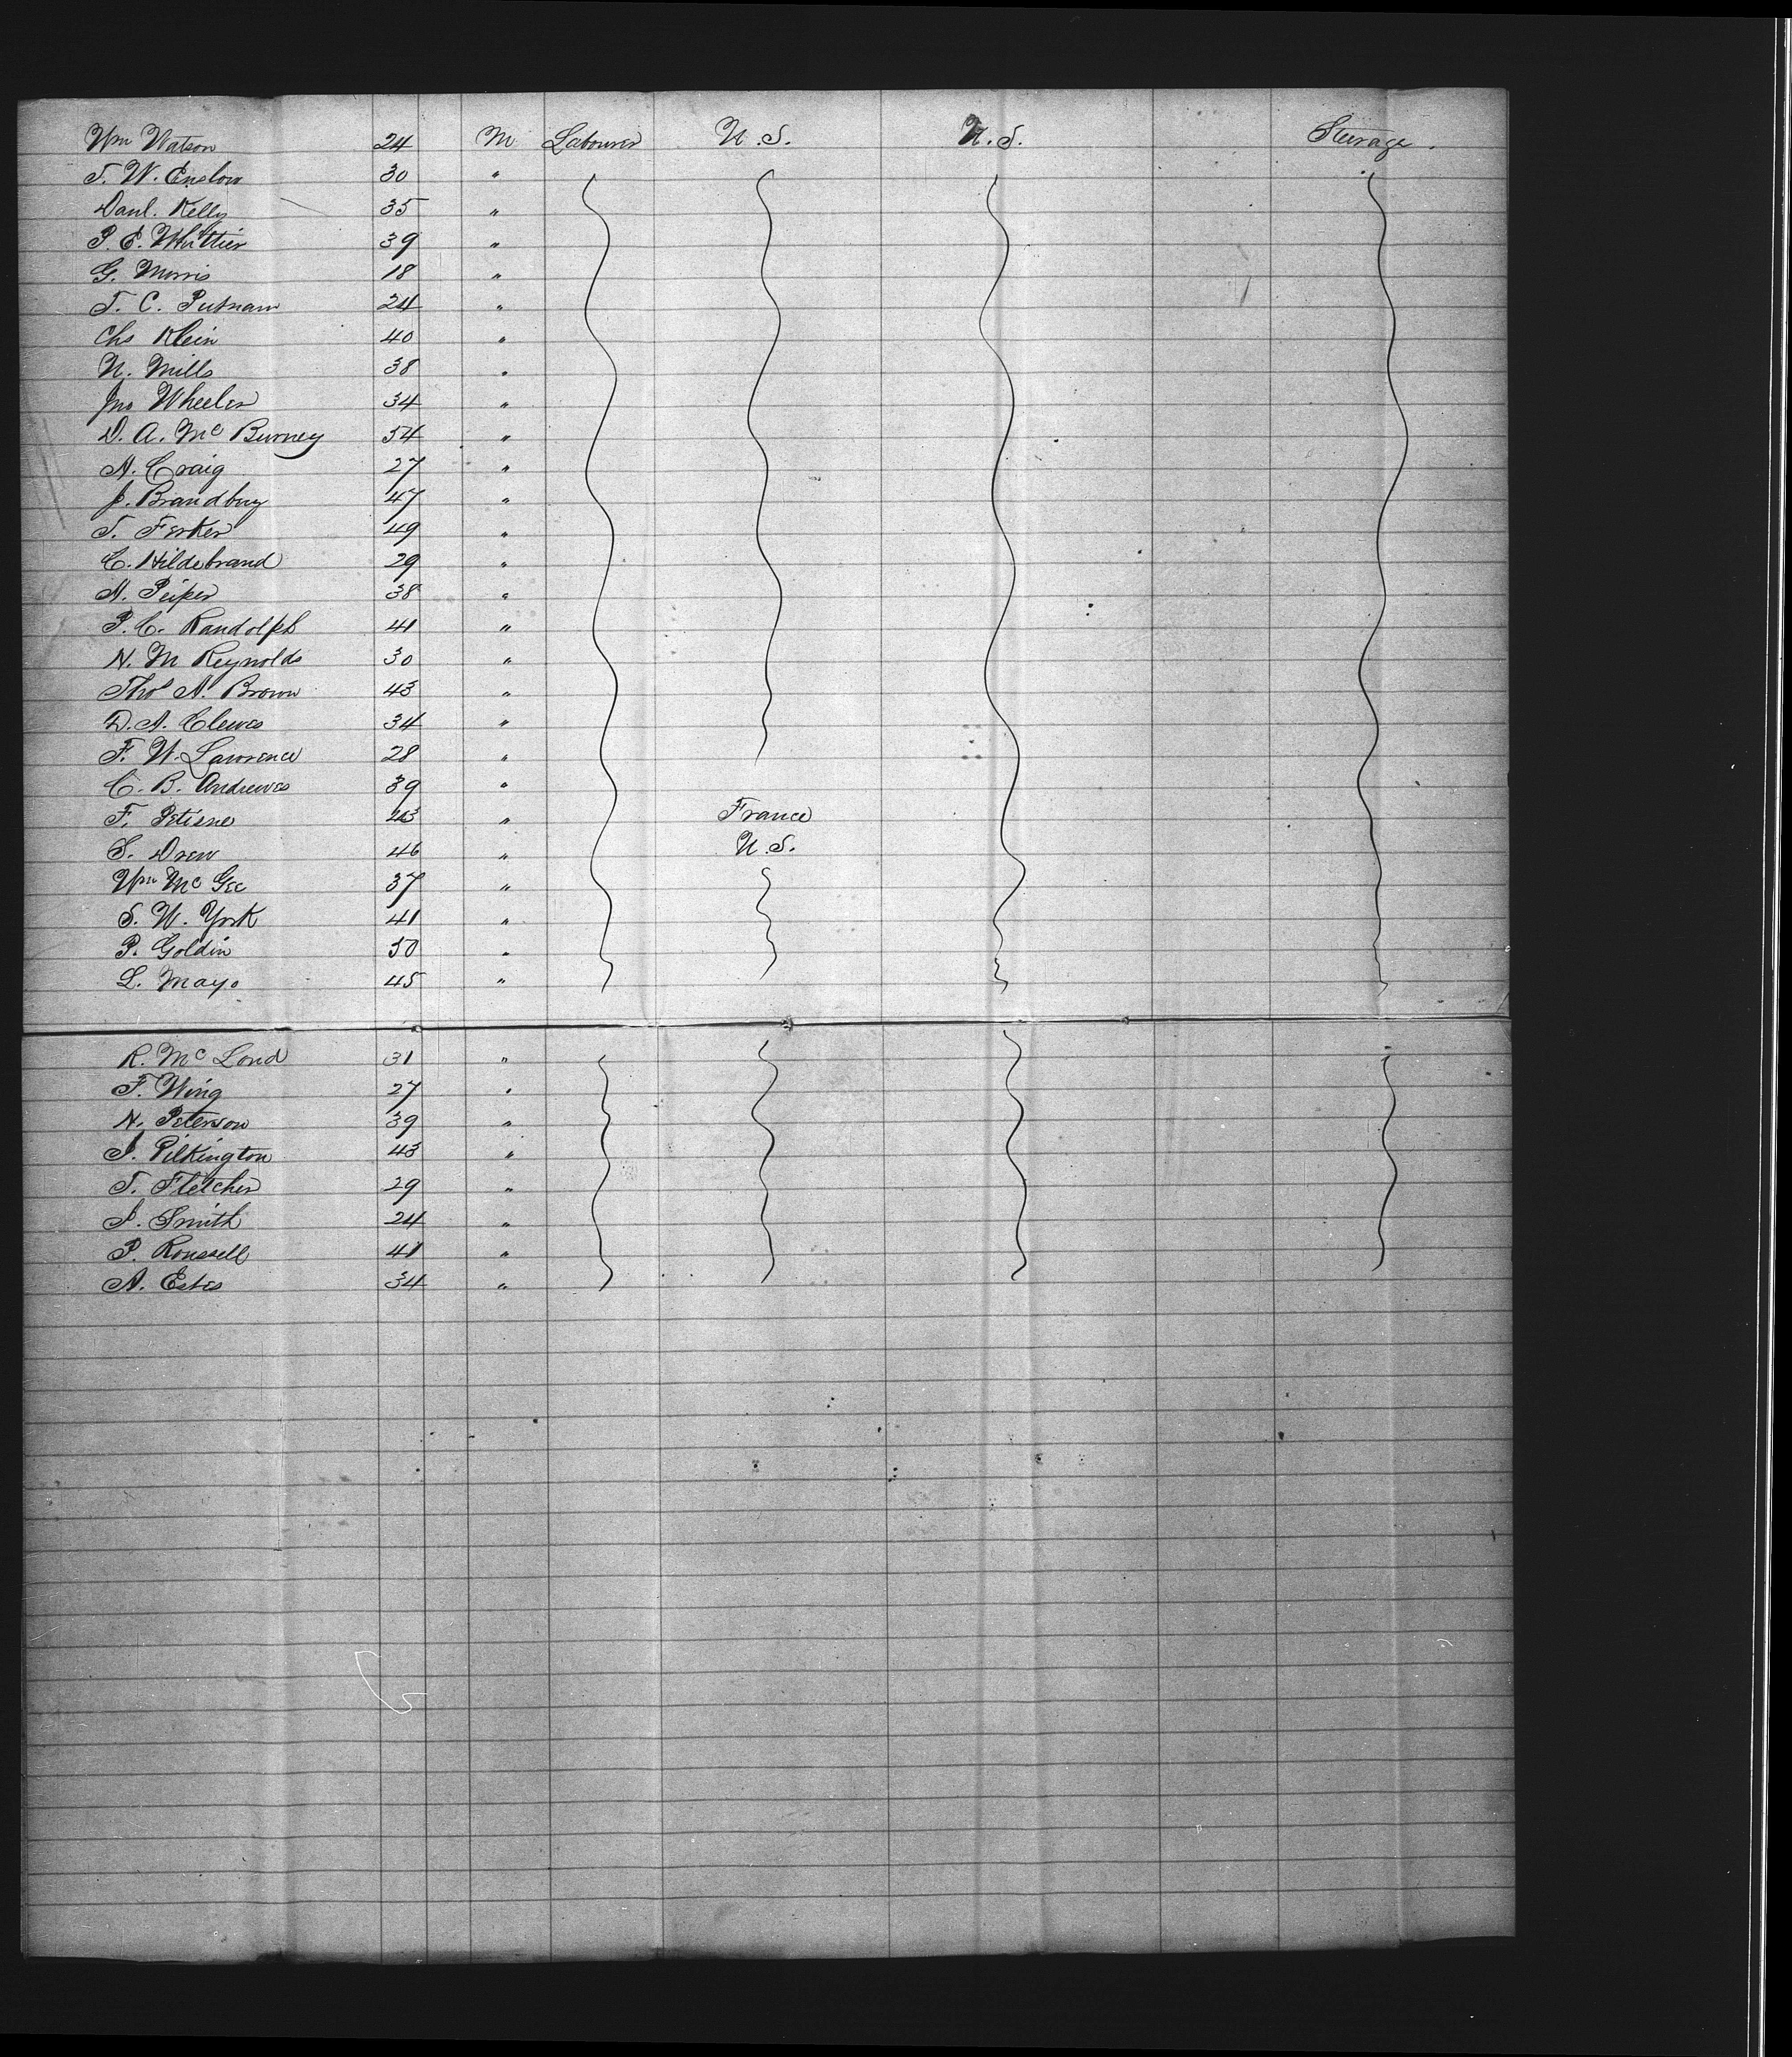 Wm Watson 24 M Labourer U.S. U.S. Steerage.
T. W. Enslow 30 "
Danl. Kelly 35 "
P. E. Whittier 39 "
G. Morris 18 "
T. C. Putnam 24 "
Chs Klein 40 "
N. Mills 38 "
Jno Wheeler 34 "
D. A. Mc Burney 54 "
A. Craig 27 "
J. Brandbury 47 "
T. Ferker 49 "
C. Hildebrand 29 "
A. Peiper 38 "
P. C. Randolph 41 "
N. M Reynolds 30 "
Thos A. Brown 43 "
D. A. Clewes 34 "
F. W. Lawrence 28 "
C. B. Andrewes 39 "
F. 43 " France
S. Drew 46 " U.S.
Wm Mc Gee 37 "
S. W. York 41 "
P. Goldin 50 "
L. Mayo 45 "
R. Mc Lond 31 "
F. Wing 27 "
N. Peterson 39 "
J. Pilkington 43 "
T. Fletcher 29 "
J. Smith 24 "
P. Roussell 41 "
A. Estes 34 "